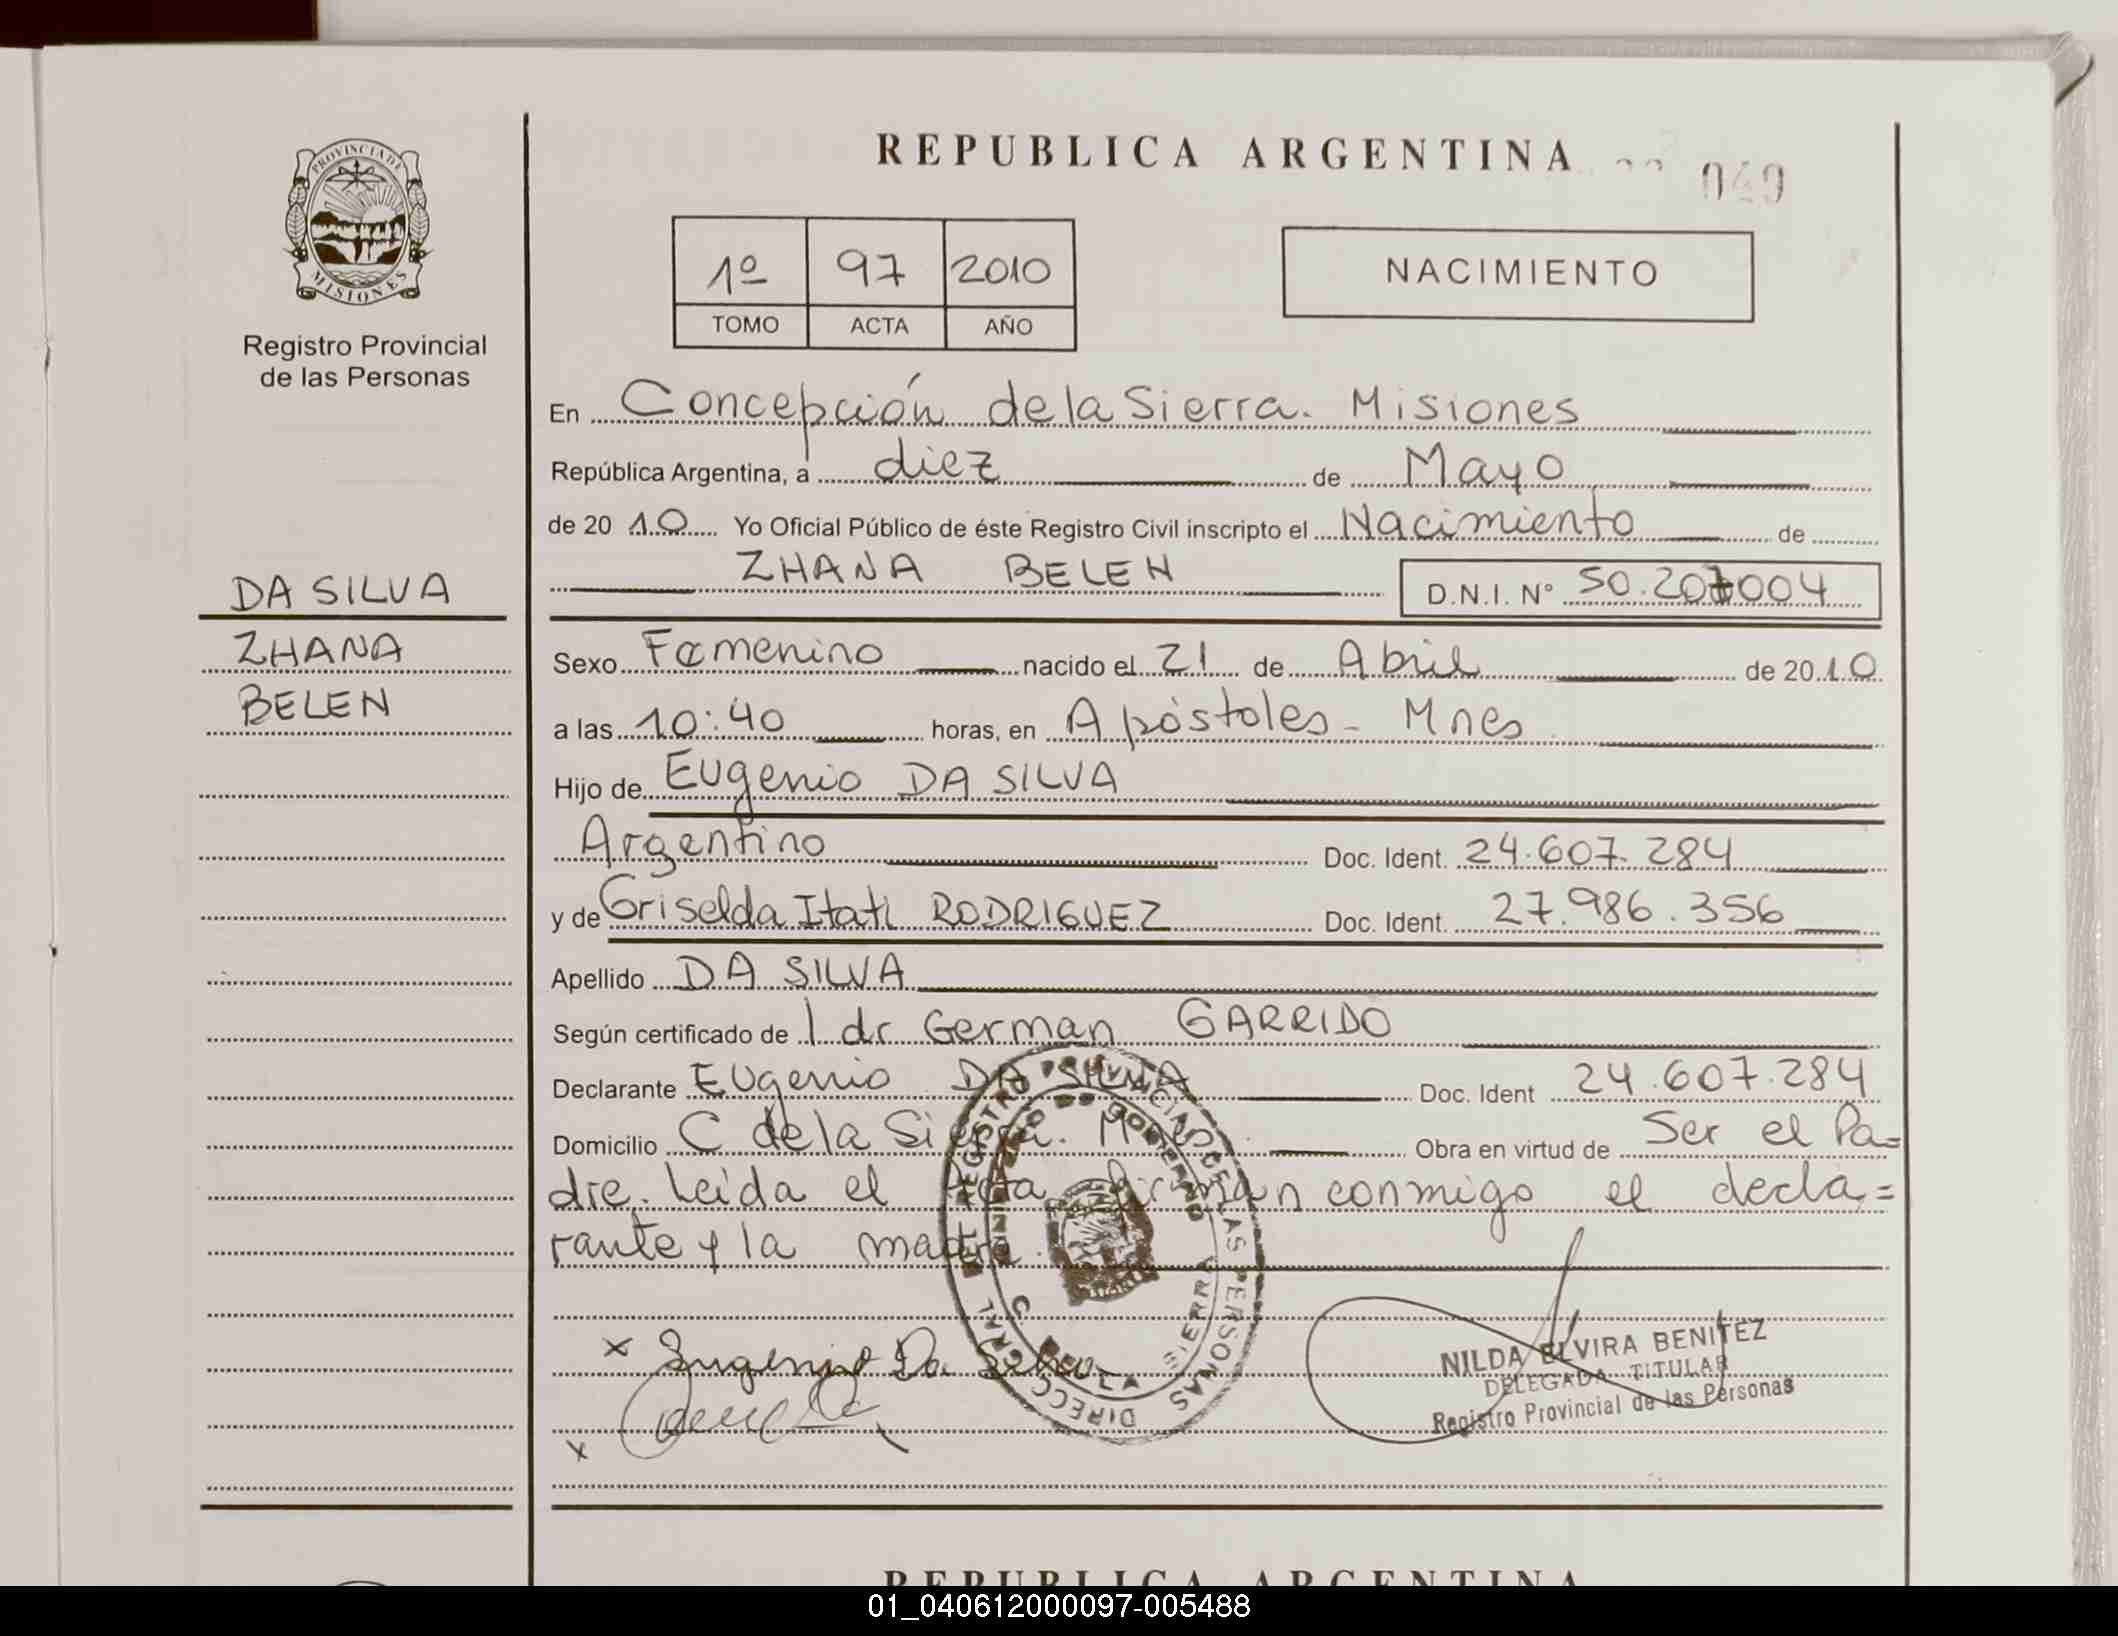 REPUBLICA ARGENTINA
049
PROVINCIA DE
MISIONES
Registro Provincial
de las Personas
1º 97 2010
TOMO ACTA AÑO
NACIMIENTO
En Concepción de la Sierra. Misiones
República Argentina, a diez de Mayo
de 2010 Yo Oficial Público de éste Registro Civil inscripto el Nacimiento de
ZHANA BELEN D.N.I. Nº
DA SILVA
ZHANA
BELEN
Sexo Femenino nacido el 21 de Abril de 2010
a las 10:40 horas, en Apóstoles - Mnes
Hijo de Eugenio DA SILVA
Argentino Doc. Ident. 24.607.284
y de Griselda Itatí RODRIGUEZ Doc. Ident. 27.986.356
Apellido DA SILVA
Según certificado de l dr German GARRIDO
Declarante Eugenio DA SILVA Doc. Ident 24.607.284
Domicilio C de la Sierra. Mnes Obra en virtud de Ser el Pa=
dre. Leída el Acta firman conmigo el decla=
rante y la madre.
x Eugenio Da Silva
x
NILDA ELVIRA BENITEZ
DELEGADA TITULAR
Registro Provincial de las Personas
REPUBLICA ARGENTINA
01_040612000097-005488